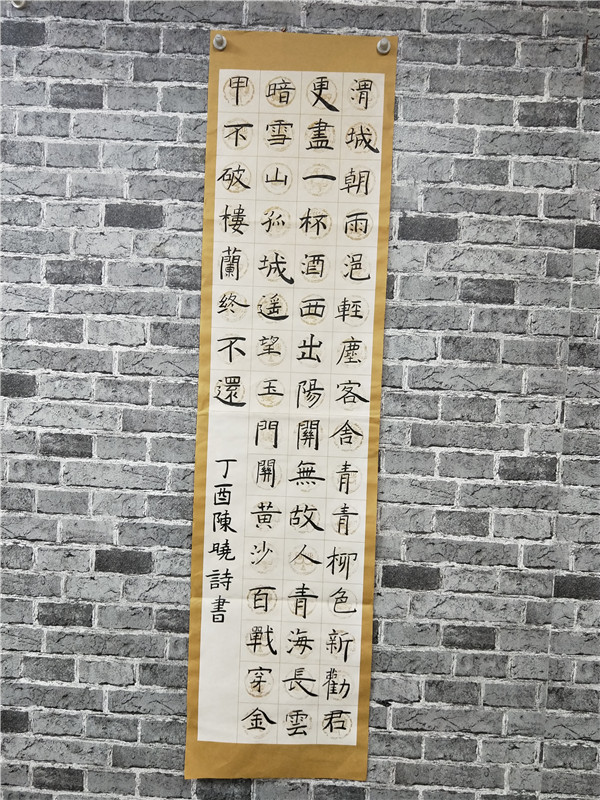 渭城朝雨浥輕塵客舍青青柳色新勸君
更盡一杯酒西出陽關無故人青海長雲
暗雪山孤城遥望玉門關黄沙百戰穿金
甲不破樓蘭終不還
丁酉陳曉詩書